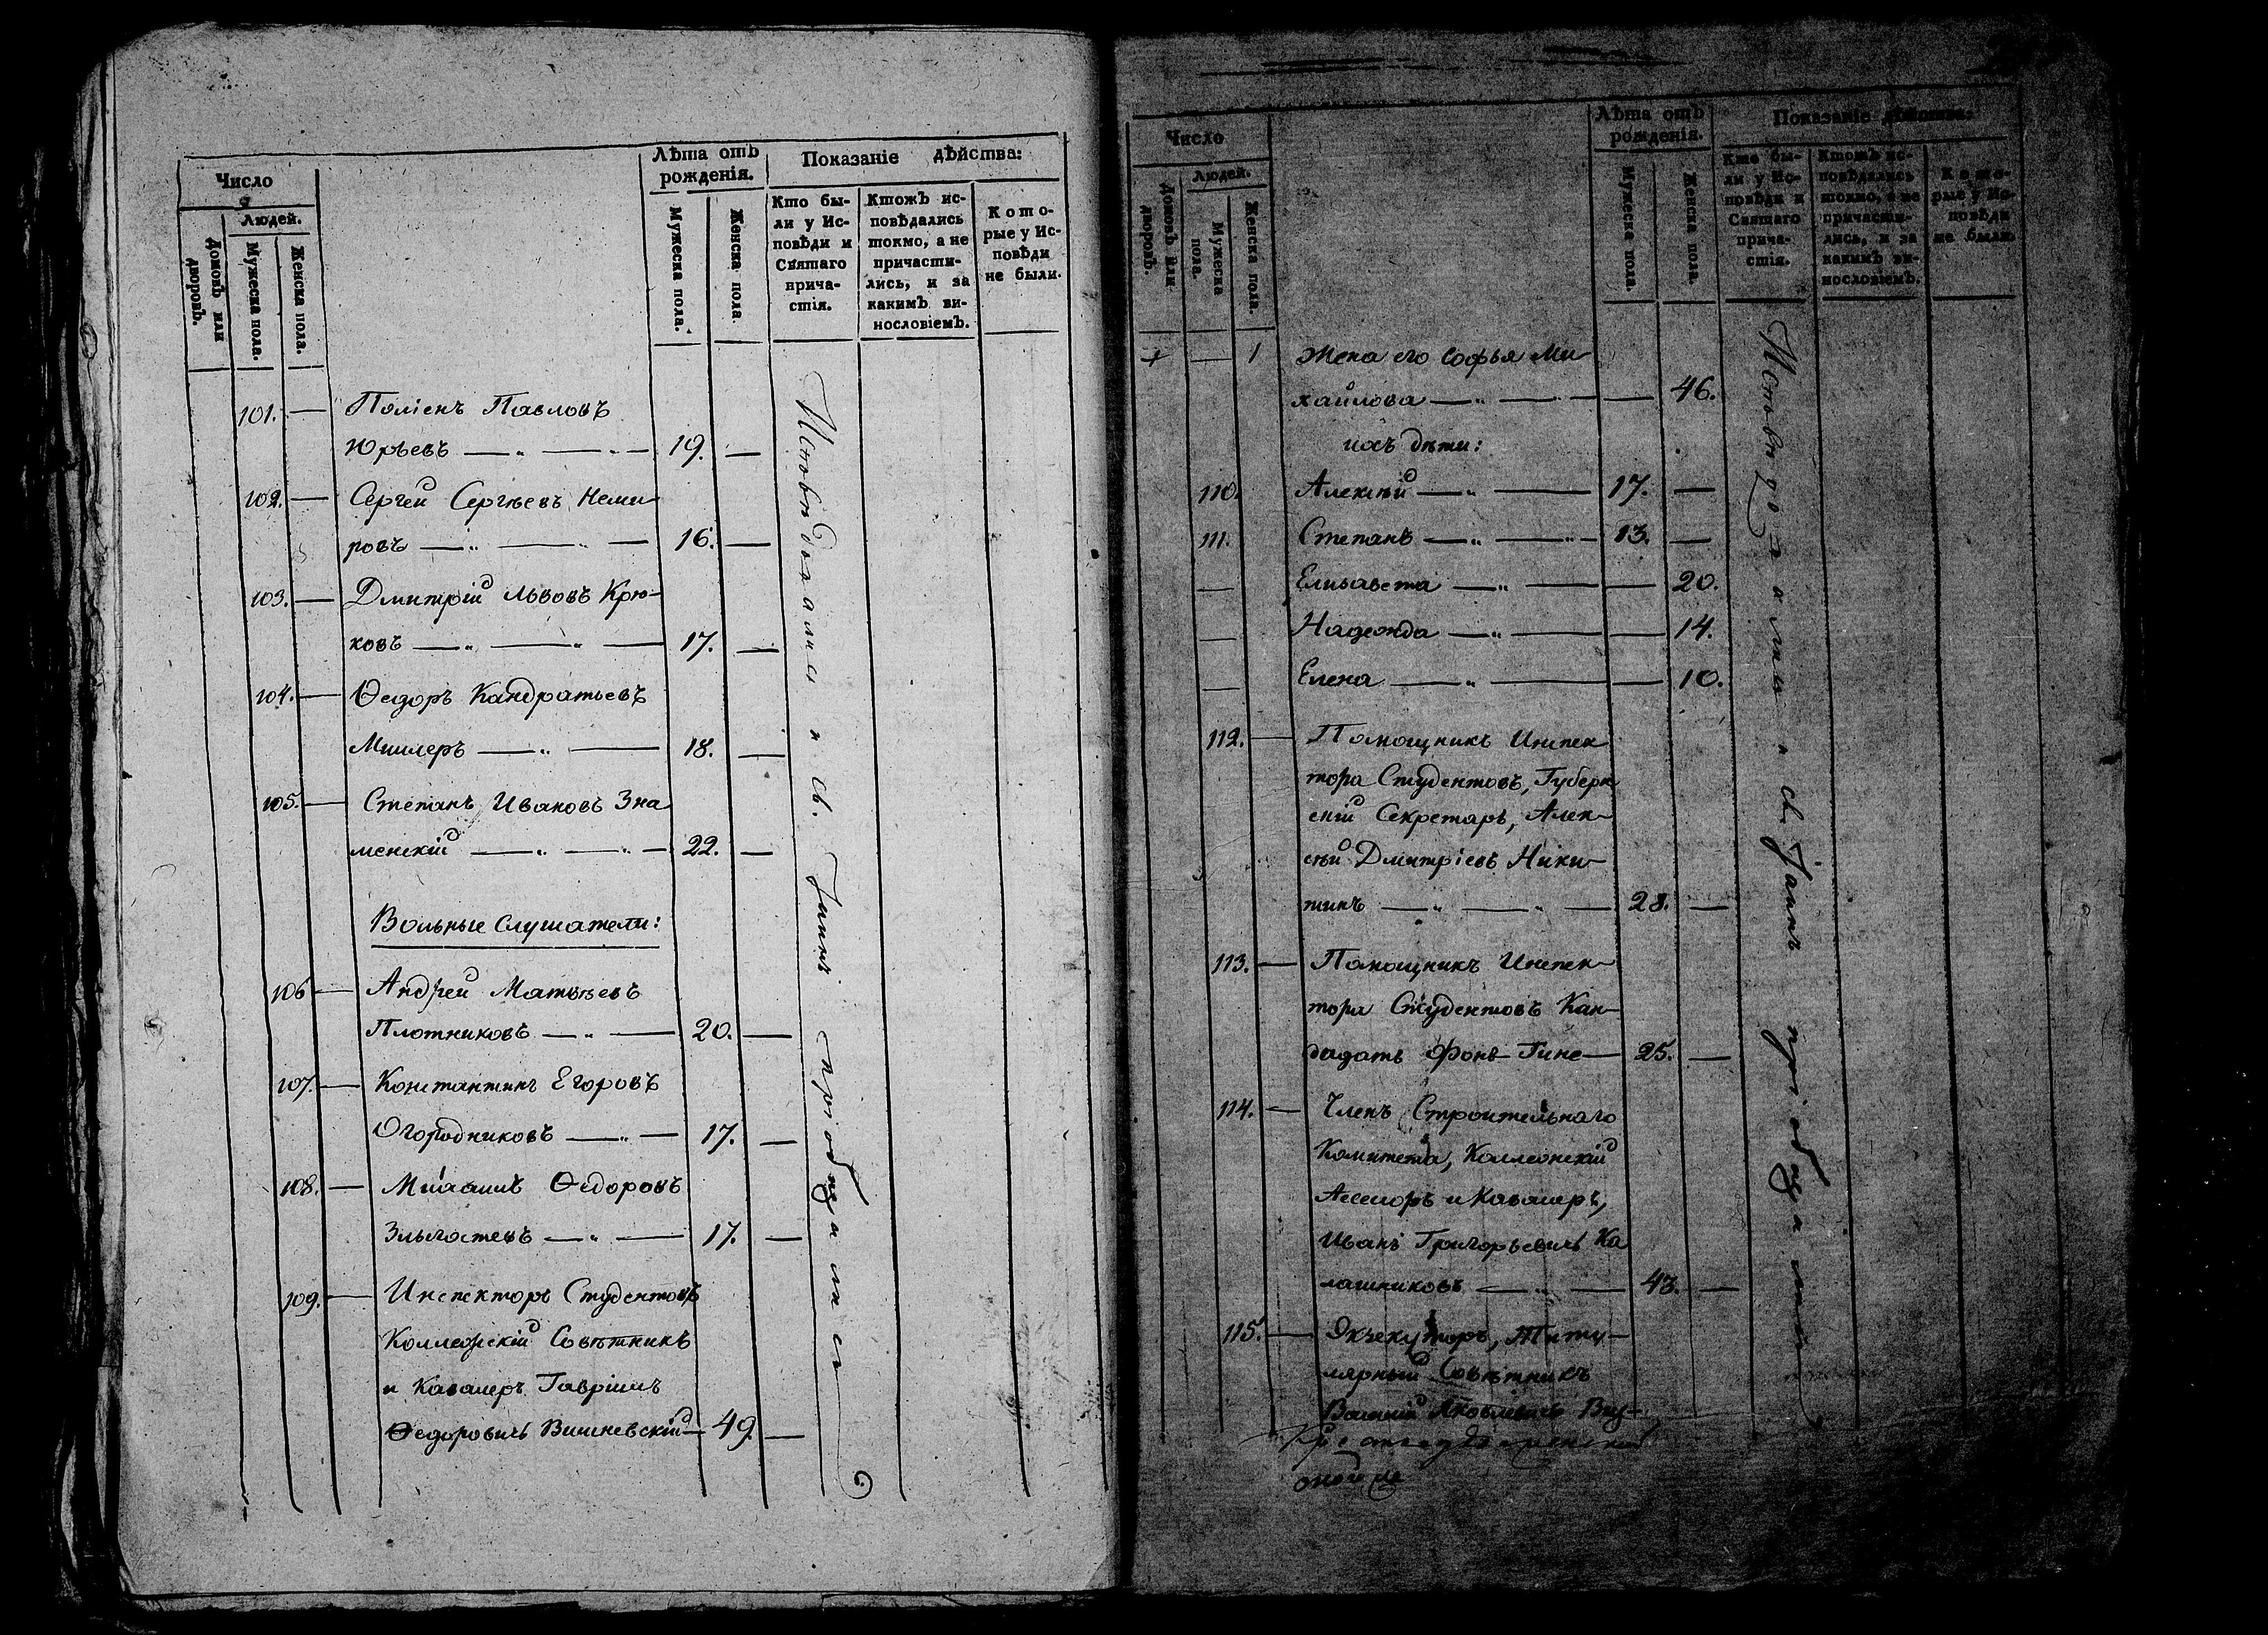 Число
Людей.
Домовъ или дворовъ.
Мужеска пола.
Женска пола.
Лѣта отъ рожденія.
Мужеска пола.
Женска пола.
Показаніе дѣйства:
Кто бы-
ли у Ис-
повѣди и
Святаго
прича-
стія.
Ктожъ ис-
повѣдались
токмо, а не
причасти-
лись, и за
какимъ ви-
нословіемъ.
Кото-
рые у Ис-
повѣди
не были.
101. — Поліенъ Павловъ
Юрьевъ — „ — „ — 19. —
102. — Сергей Сергѣевъ Неми-
ровъ — „ — „ — 16. —
103. — Дмитрій Львовъ Крю-
ковъ — „ — „ — 17. —
104. — Ѳедоръ Кандратьевъ
Миллеръ — „ — 18. —
105. — Степанъ Ивановъ Зна
менскій — „ — „ — 22. —
Вольные слушатели:
106 — Андрей Матвѣевъ
Плотниковъ — „ — 20. —
107. — Константинъ Егоровъ
Огородниковъ — „ — 17. —
108. — Михаилъ Ѳедоровъ
17. —
109. — Инспекторъ Студентовъ
Коллежскій Совѣтникъ
и Кавалеръ Гавріилъ
Ѳедоровичь Вишневскій — 49. —
Исповѣдовались и св. Таинъ пріобщались
Число
Людей.
Домовъ или дворовъ.
Мужеска пола.
Женска пола.
Лѣта отъ рожденія.
Мужеска пола.
Женска пола.
Показаніе дѣйства:
Кто бы-
ли у Ис-
повѣди и
Святаго
прича-
стія.
Ктожъ ис-
повѣдались
токмо, а не
причасти-
лись, и за
какимъ ви-
нословіемъ.
Кото-
рые у Ис-
повѣди
не были.
+ — 1 Жена его Софья Ми
хайлова — „ — — 46.
ихъ дѣти:
110. Алексѣй — „ — 17. —
111. Степанъ — „ — „ — 13. —
— Елисавета — „ — — 20.
— Надежда — „ — — 14.
— Елена — „ — — 10.
112. — Помощникъ Инспек
тора Студентовъ, Губерн
скій Секретарь, Алек-
сѣй Дмитріевъ Ники-
тинъ — „ — „ — 28. —
113. — Помощникъ Инспек-
тора Студентовъ Кан-
дидатъ Фонъ Гине — 25. —
114. — Членъ Строительнаго
Комитета, Коллежскій
Ассесоръ и Кавалеръ,
Иванъ Григорьевичь Ка
лашниковъ — „ — 43. —
115. — Экзекуторъ, Титу-
лярный Совѣтникъ
Василій Яковлевичь
Исповѣдовались и св. Таинъ пріобщались